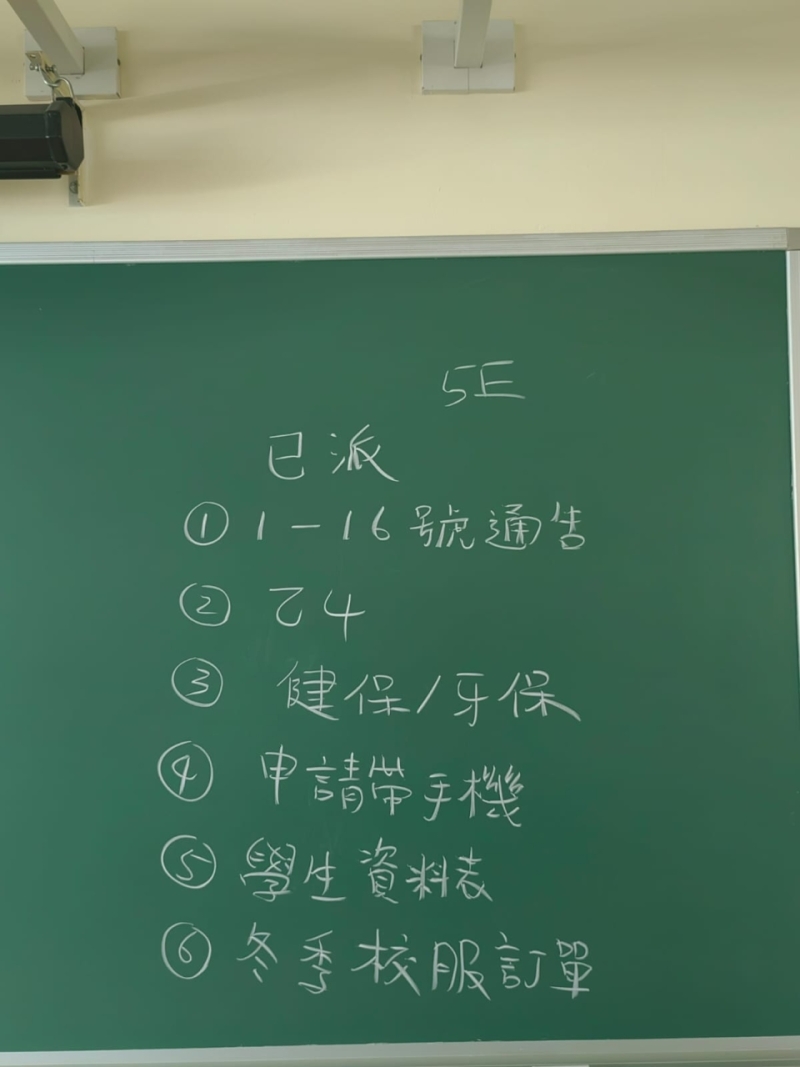 5E
已派
① 1-16號通告
② 乙4
③ 健保/牙保
④ 申請帶手機
⑤ 學生資料表
⑥ 冬季校服訂單